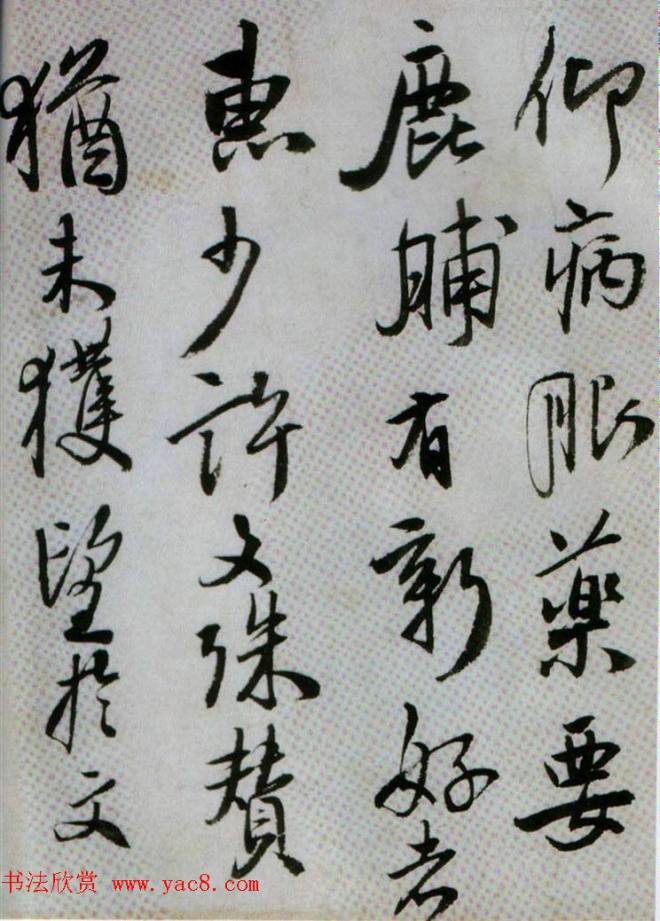 仰病服藥要
鹿脯有新好者
惠少許文殊賛
猶未獲望於文
书法欣赏 www.yac8.com